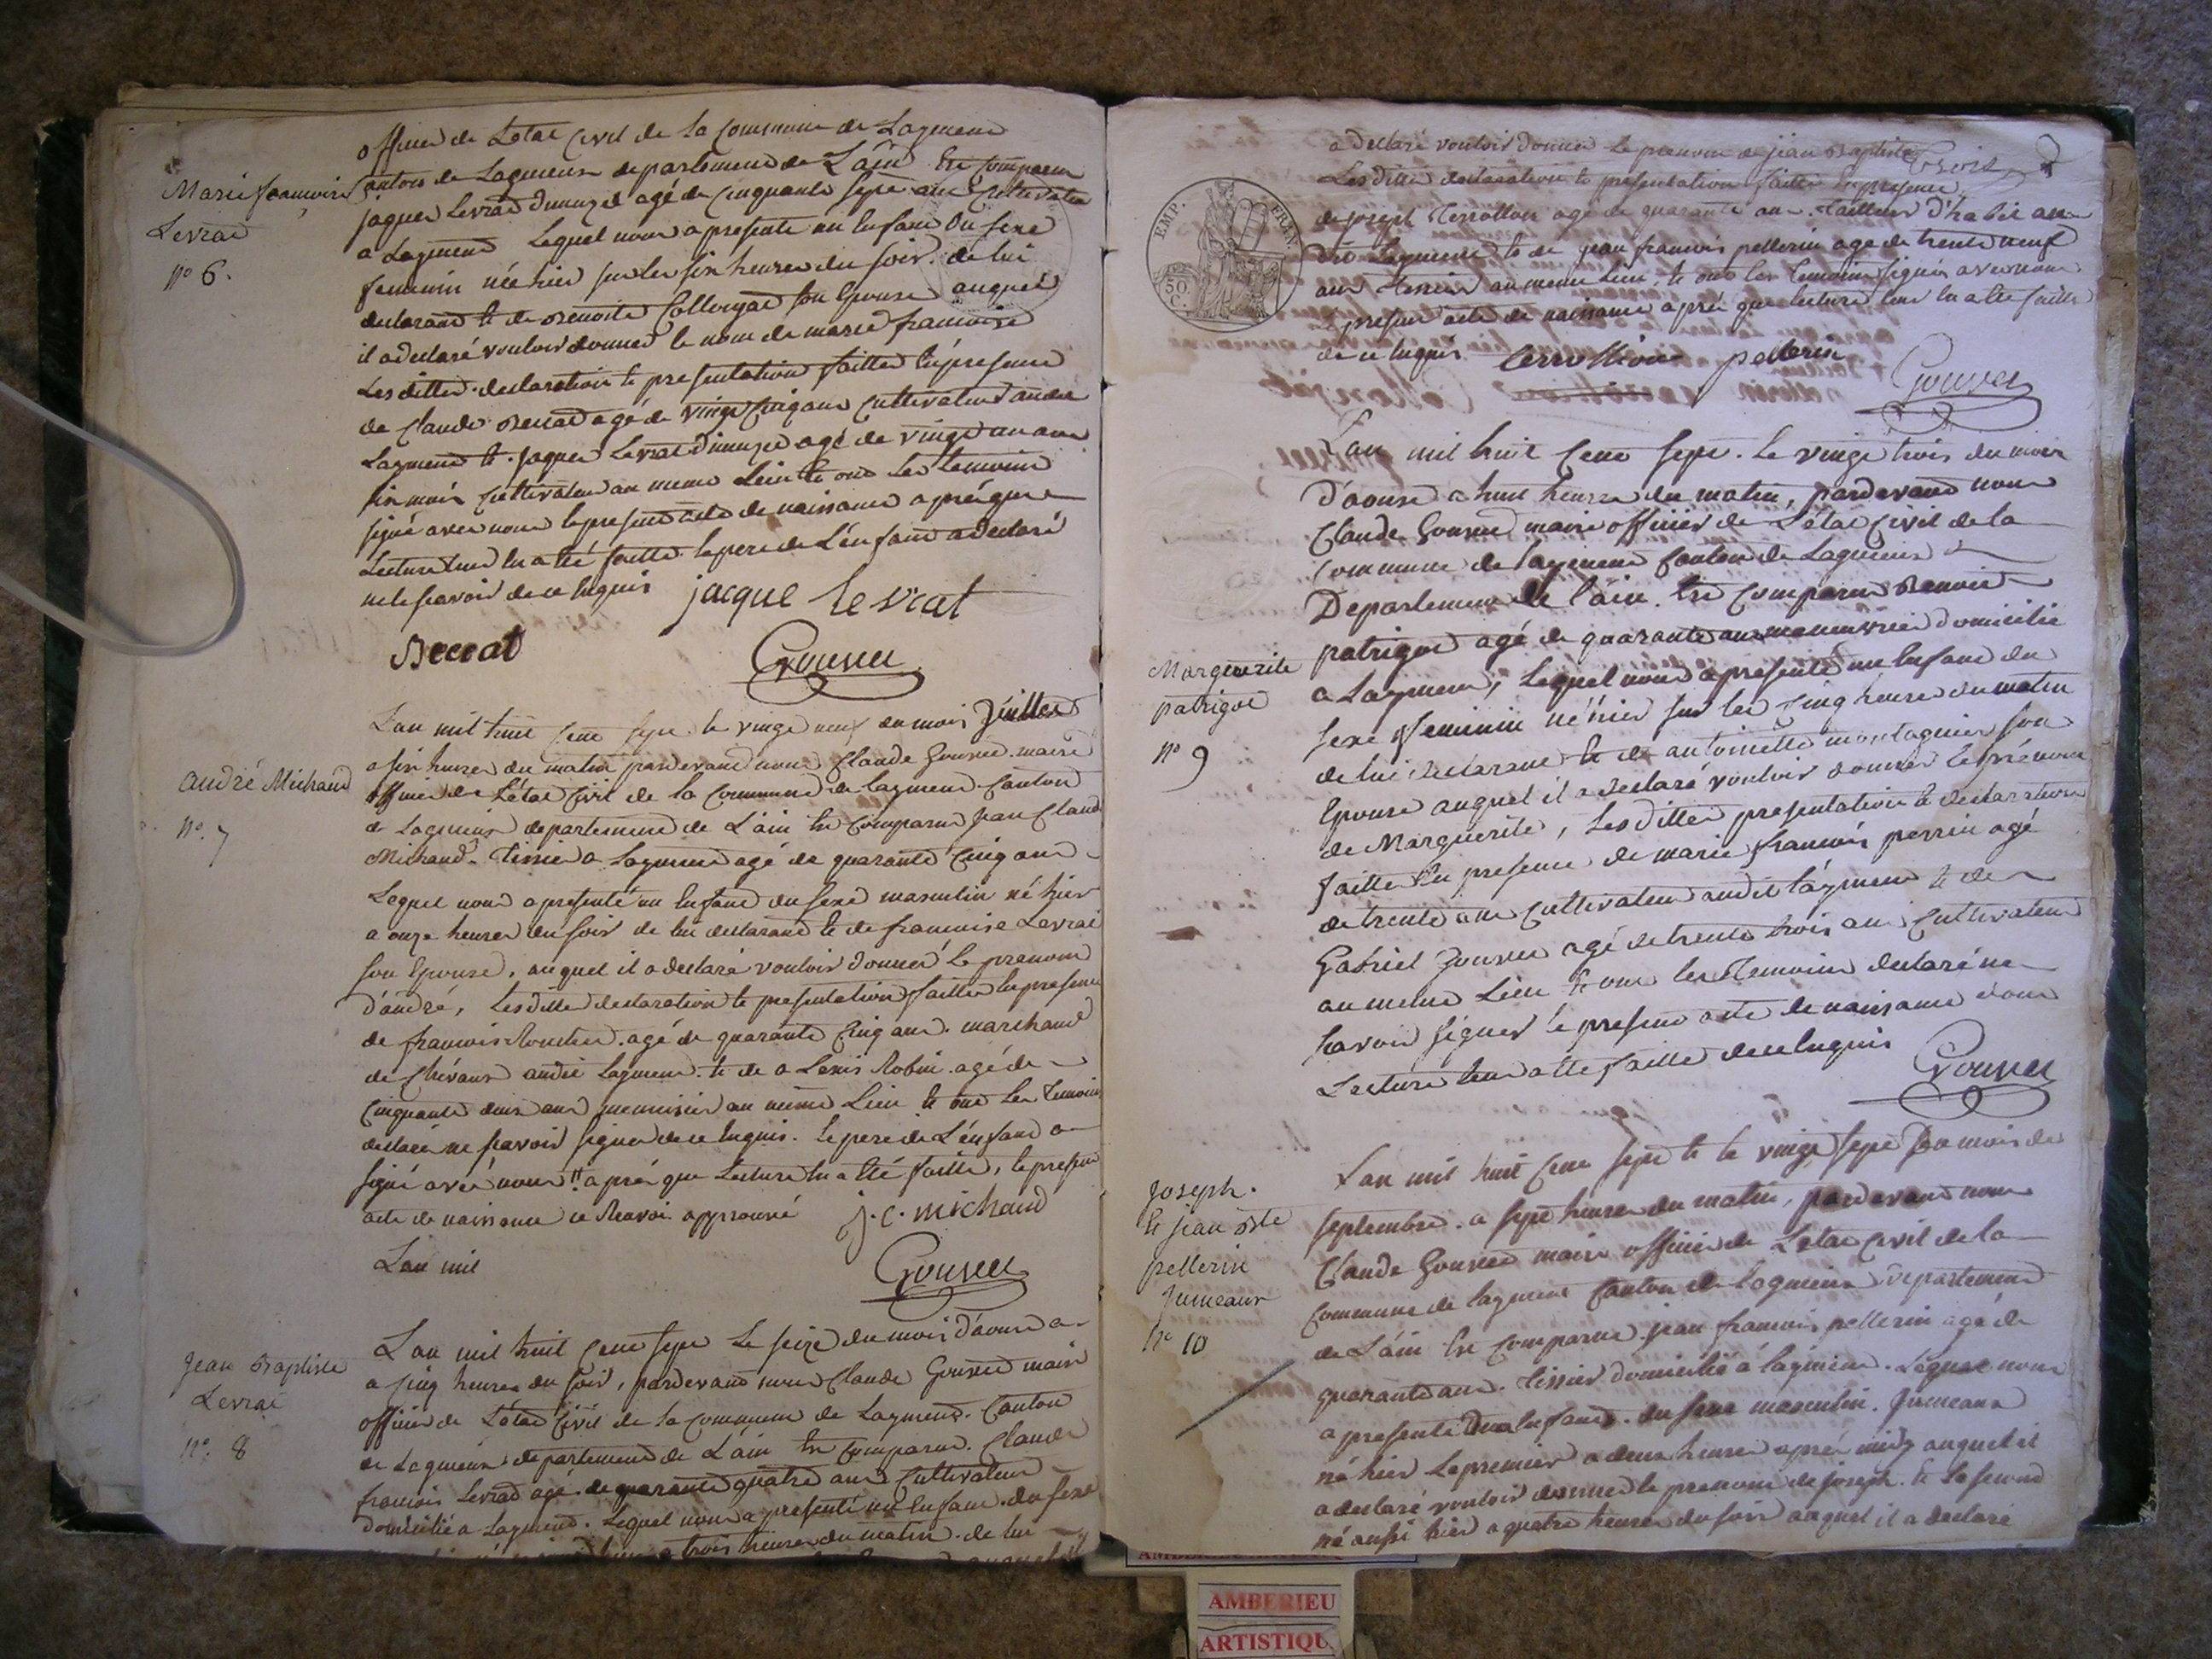 officier de L'etat Civil de la Commune de Laymend
Canton de Lagnieux departement de L'ain Est Comparu
Marie francoise
Levrat
n° 6.
jaques Levrat agé de Cinquante sept ans Cultivateur
a Laymend Lequel nous a presenté un Enfant Du sexe
feminin née hier sur les six heures du soir. de lui
declarant Et de Benoite Collongat son Epouse auquel
il a declaré vouloir donner le nom de marie francoise
Lesdittes declaration Et presentation faittes En presence
de Claude Beccat agé de vingt Cinq ans Cultivateur audit
Laymend Et jaques Levrat agé de vingt un ans
six mois Cultivateur au meme Lieu Et ont Les temoins
signé avec nous le present acte de naissance aprés que
Lecture Leur En a Eté faitte. le pere de L'enfant a declaré
ne le scavoir de ce Enquis jacque levrat
Beccat
Gouvet
andré Michaud
n° 7
L'an mil huit Cent sept le vingt neuf du mois Juillet
a six heures du matin pardevant nous Claude Gouvet maire
officier de L'état Civil de la Commune de laymend Canton
de Lagnieux departement de L'ain Est Comparu Jean Claud
Michaud Tissier a Laymend agé de quarante Cinq ans
Lequel nous a presenté un Enfant du sexe masculin né hier
a onze heures du soir de lui declarant Et de francoise Levrat
son Epouse, auquel il a declaré vouloir donner le prenom
d'andré, Lesditte declaration Et presentation faittes En presence
de francois agé de quarante Cinq ans. marchand
de Chévaux audit Laymend. Et de Robin agé de
Cinquante deux ans menuisier au même Lieu Et ont Les temoins
declaré ne scavoir signer de ce Enquis. le pere de L'énfant a
signé avec nous aprés que Lecture En a Eté faitte, le present
acte de naissance ce Renvoi approuvé j. c. michaud
L'an mil
Gouvet
Jean Baptiste
Levrat
n° 8
L'an mil huit Cent sept Le seize du mois d'aoust a
a sinq heures du soir, pardevant nous Claude Gouvet maire
officier de L'état Civil de la Commune de Laymend. Canton
de Lagnieux departement de L'ain Est Comparu. Claude
francois Levrat agé de quarante quatre ans Cultivateur
domicilié a Laymend. Lequel nous a presenté un Enfant du sexe
trois heures du matin. de lui
a declaré vouloir donner le prenom de jean Baptiste
trois
Lesdittes declaration Et presentation faittes En presence
de joseph Terrollion agé de quarante ans. Tailleur d'habit au
dit Laymend Et de jean francois pellerin agé de trente neuf
ans tissier au meme Lieu, Et ont les temoins signés avec nous
le present acte de naissance aprés que lecture leur En a Eté faitte
de ce Enquis. terrollion pellerin
Gouvet
EMP.
FRAN.
50
C.
L'an mil huit Cent sept. Le vingt trois du mois
D'aoust a huit heures du matin, pardevant nous
Claude Gouvet maire officier de L'état Civil de la
Commune de laymend Canton de Lagnieux
Departement de l'ain. Est Comparu Benoit
patrigot agé de quarante ans menuisier domicilié
Marguerite
patrigot
n° 9
a Laymend, Lequel nous a presenté un Enfant du
sexe feminin né hier sur les sinq heures du matin
de lui declarant Et de antoinette montagnier son
Epouse auquel il a declaré vouloir donner le prénom
de Marguerite, Lesdittes presentation Et declaration
faittes En presence de marie francois perrin agé
de trente ans Cultivateur audit laymend Et de
Gabriel Gouvet agé de trente trois ans Cultivateur
au meme Lieu Et ont les temoins declaré ne
scavoir signer le present acte de naissance dont
Lecture leur a Eté faitte de ce Enquis
Gouvet
joseph.
Et jean Bte
pellerin
jumeaux
n° 10
L'an mil huit Cent sept Et le vingt sept du mois de
septembre. a sept heures du matin, pardevant nous
Claude Gouvet maire officier de L'etat Civil de la
Commune de laymend Canton de lagnieux departement
de L'ain Est Comparu jean francois pellerin agé de
quarante ans. tissier domicilié á laymend. Lequel nous
a presenté deux Enfants. du sexe masculin. Jumeaux
né hier Le premier a deux heures aprés midy auquel il
a declaré vouloir donner le prenom de joseph. Et Le second
né aussi hier a quatre heures du soir auquel il a declaré
AMBERIEU
ARTISTIQU